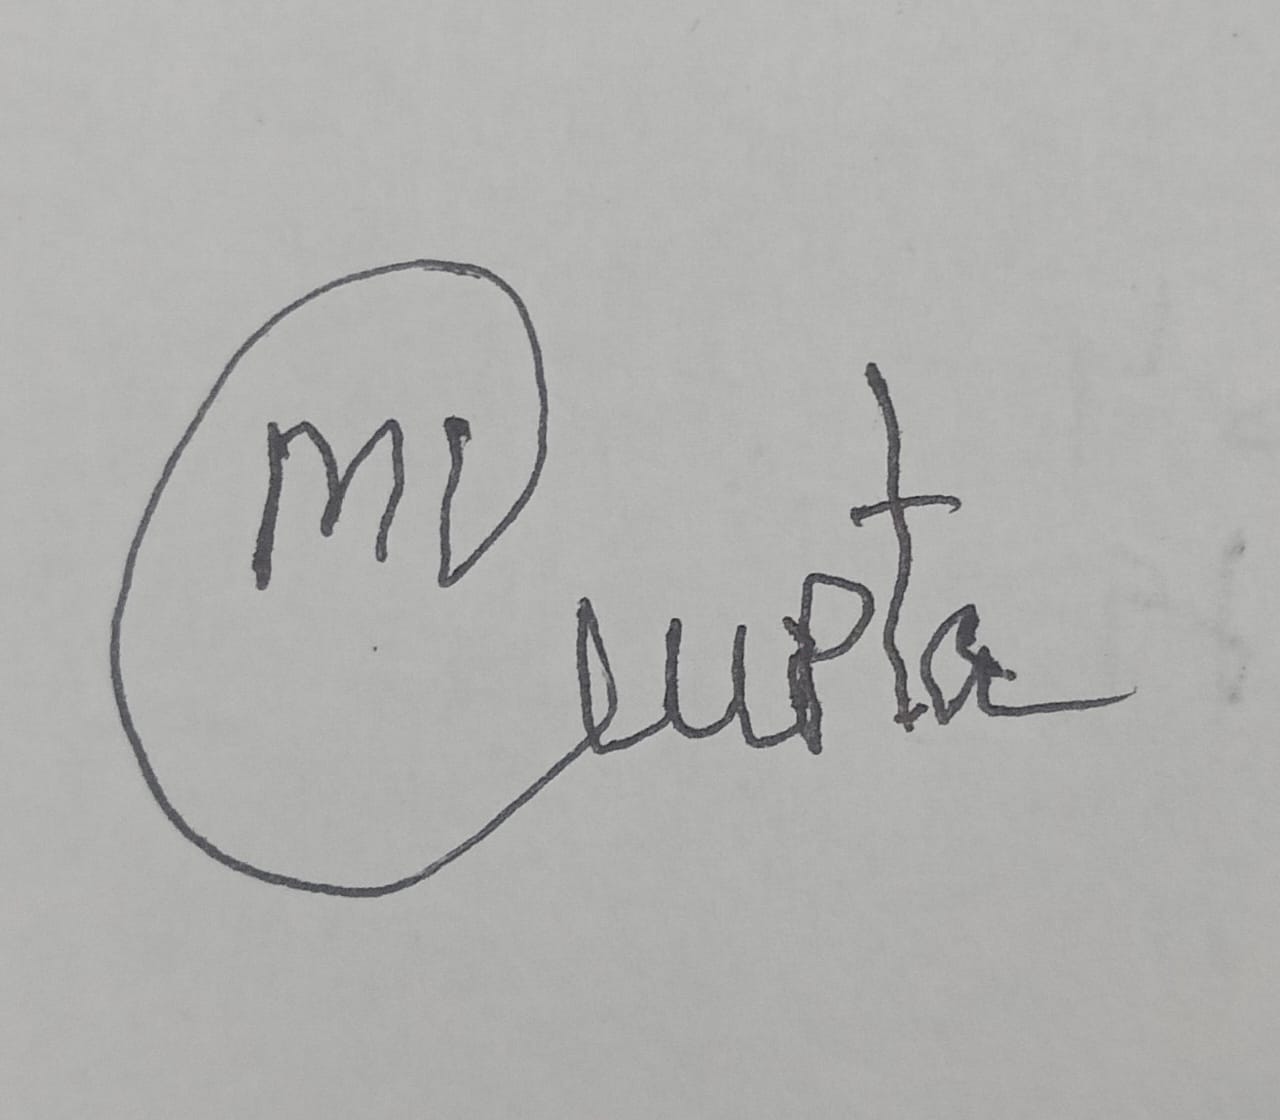 MV Gupta